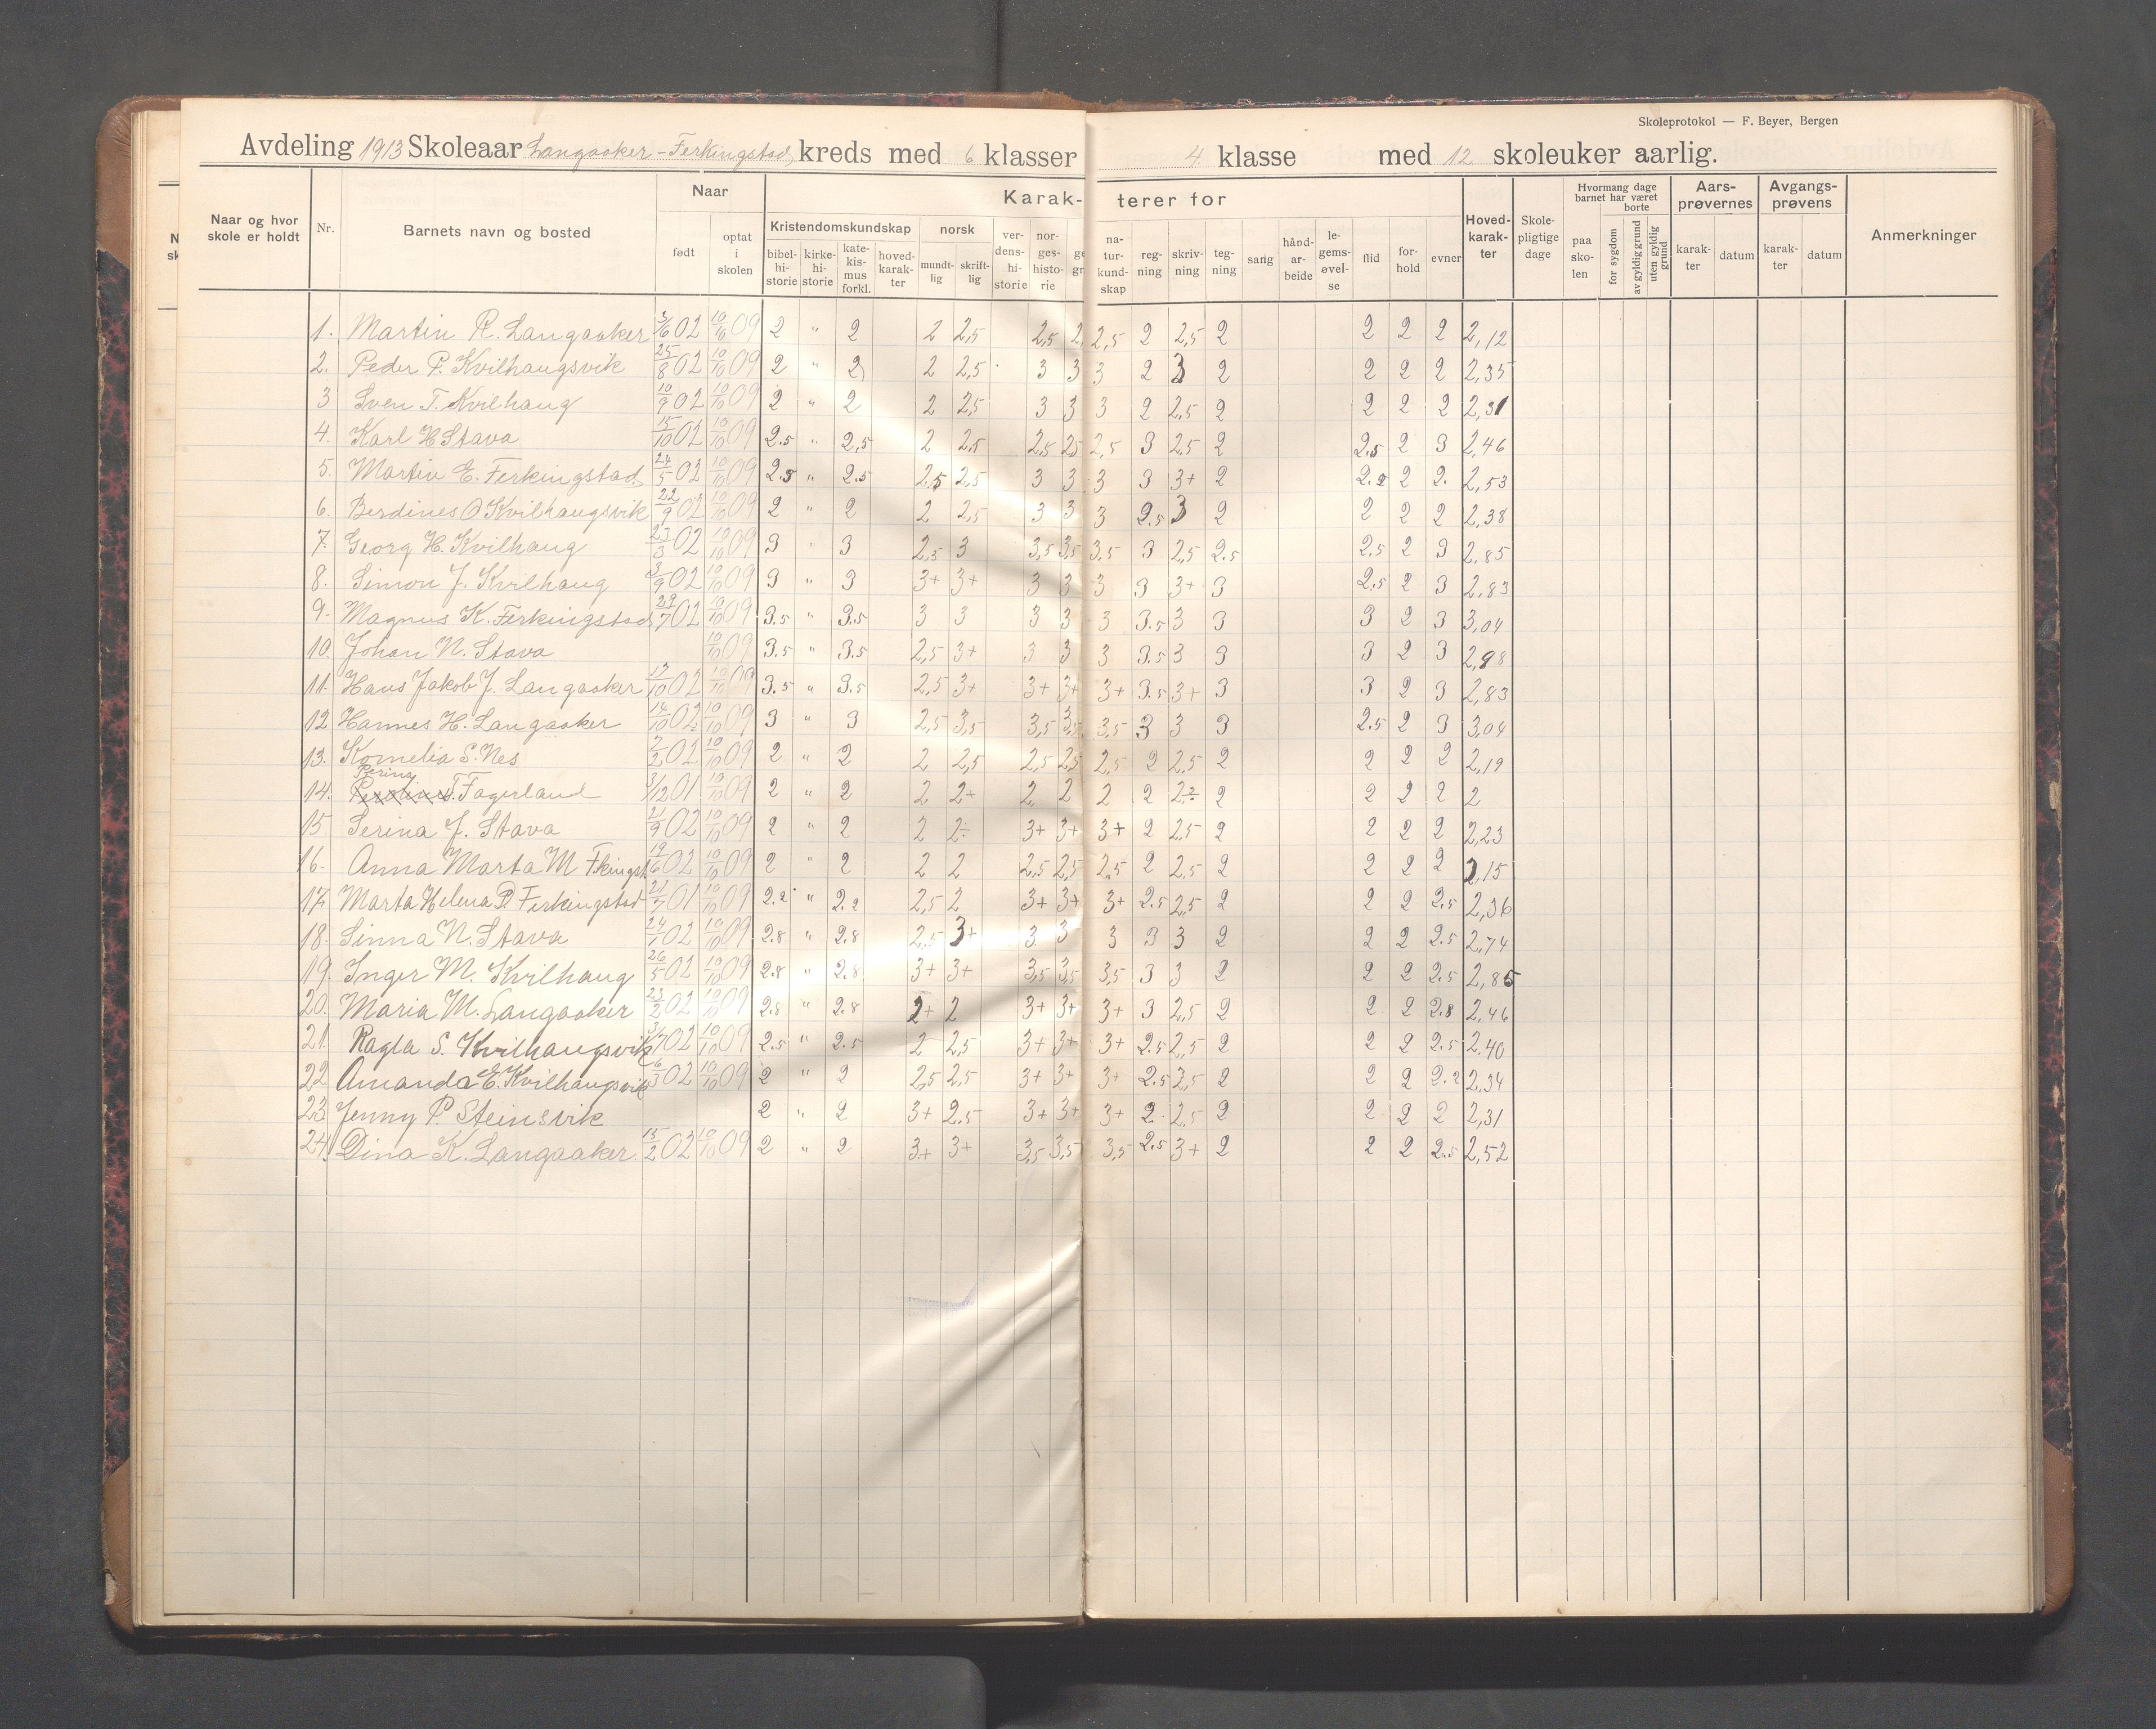 Skoleprotokol — F. Beyer, Bergen
Avdeling 1913 Skoleaar Langaaker-Ferkingstad kreds med 6 klasser 4 klasse med 12 skoleuker aarlig.
Naar og hvor skole er holdt Nr. Barnets navn og bosted Naar født optat i skolen Karakterer for Kristendomskundskap bibelhistorie kirkehistorie katekismus forkl. hovedkarakter norsk mundtlig skriftlig verdenshistorie norgeshistorie naturkundskap regning skrivning tegning sang håndarbeide legemsøvelse flid forhold evner Hovedkarakter Skolepligtige dage Hvormang dage barnet har været paa skolen borte for sygdom av gyldig grund uten gyldig grund Aarsprøvernes karakter datum Avgangsprøvens karakter datum Anmerkninger
1. Martin R. Langaaker 3/6 02 10/10 09 2 " 2 2 2,5 2,5 2, 2,5 2 2,5 2 2 2 2 2,12
2. Peder P. Kvilhaugsvik 25/8 02 10/10 09 2 " 2 2 2,5 3 3 3 2 3 2 2 2 2 2,35
3 Sven T. Kvilhaug 10/9 02 10/10 09 2 " 2 2 2,5 3 3 3 2 2,5 2 2 2 2 2,31
4. Karl H Stava 15/10 02 10/10 09 2.5 " 2,5 2 2,5 2,5 2,5 2,5 3 2,5 2 2.5 2 3 2,46
5. Martin E. Ferkingstad 24/5 02 10/10 09 2.5 " 2.5 2,5 2,5 3 3 3 3 3+ 2 2.2 2 2. 2,53
6. Berdines O Kvilhaugsvik 22/9 02 10/10 09 2 " 2 2 2,5 3 3 3 2.5 3 2 2 2 2 2,38
7. Georg H. Kvilhaug 23/3 02 10/10 09 3 " 3 2,5 3 3,5 3,5 3,5 3 2,5 2.5 2,5 2 3 2,85
8. Simon J. Kvilhaug 3/9 02 10/10 09 3 " 3 3+ 3+ 3 3 3 3 3+ 3 2.5 2 3 2,83
9. Magnus K. Ferkingstad 29/7 02 10/10 09 3.5 " 3.5 3 3 3 3 3 3.5 3 3 3 2 3 3,04
10. Johan N. Stava 10/10 09 3.5 " 3.5 2,5 3+ 3 3 3 3.5 3 3 3 2 3 2,98
11. Hans Jakob J. Langaaker 17/10 02 10/10 09 3.5 " 3.5 2,5 3+ 3+ 3+ 3+ 3.5 3+ 3 3 2 3 2,83
12 Hannes H. Langaaker 14/10 02 10/10 09 3 " 3 2,5 3,5 3,5 3,5 3,5 3 3 3 2.5 2 3 3,04
13. Kornelia S. Nes 2/2 02 10/10 09 2 " 2 2 2,5 2,5 2,5 2,5 2 2,5 2 2 2 2 2,19
14. T. Fagerland 3/12 01 10/10 09 2 " 2 2 2+ 2 2 2 2 2 2 2 2 2 2
15. Serina J. Stava 21/9 02 10/10 09 2 " 2 2 2÷ 3+ 3+ 3+ 2 2,5 2 2 2 2 2,23
16. Anna Marta M Fkingst. 19/6 02 10/10 09 2 " 2 2 2 2,5 2,5 2,5 2 2,5 2 2 2 2 2,15
17. Marta Helena P. Ferkingstad 21/7 01 10/10 09 2.2 " 2.2 2,5 2 3+ 3+ 3+ 2.5 2,5 2 2 2 2.5 2,36
18. Sinna N. Stava 24/1 02 10/10 09 2.8 " 2.8 2,5 3+ 3 3 3 3 3 2 2 2 2.5 2,74
19. Inger M. Kvilhaug 26/5 02 10/10 09 2.8 " 2.8 3+ 3+ 3,5 3,5 3,5 3 3 2 2 2 2.5 2,85
20. Maria M. Langaaker 23/2 02 10/10 09 2.8 " 2.8 2+ 2 3+ 3+ 3+ 3 2,5 2 2 2 2.8 2,46
21. Ragla S. Kvilhaugsvik 3/7 02 10/10 09 2.5 " 2.5 2 2,5 3+ 3+ 3+ 2.5 2,5 2 2 2 2.5 2.40
22 Amanda E. Kvilhaugsvik 6/3 02 10/10 09 2 " 2 2,5 2,5 3+ 3+ 3+ 2.5 2,5 2 2 2 2.2 2,34
23 Jenny P. Steinsvik 2 " 2 3+ 2.5 3+ 3+ 3+ 2 2,5 2 2 2 2 2,31
24. Dina K. Langaaker 15/2 02 10/10 09 2 " 2 3+ 3+ 3,5 3,5 3,5 2.5 3+ 2 2 2 2.5 2,52